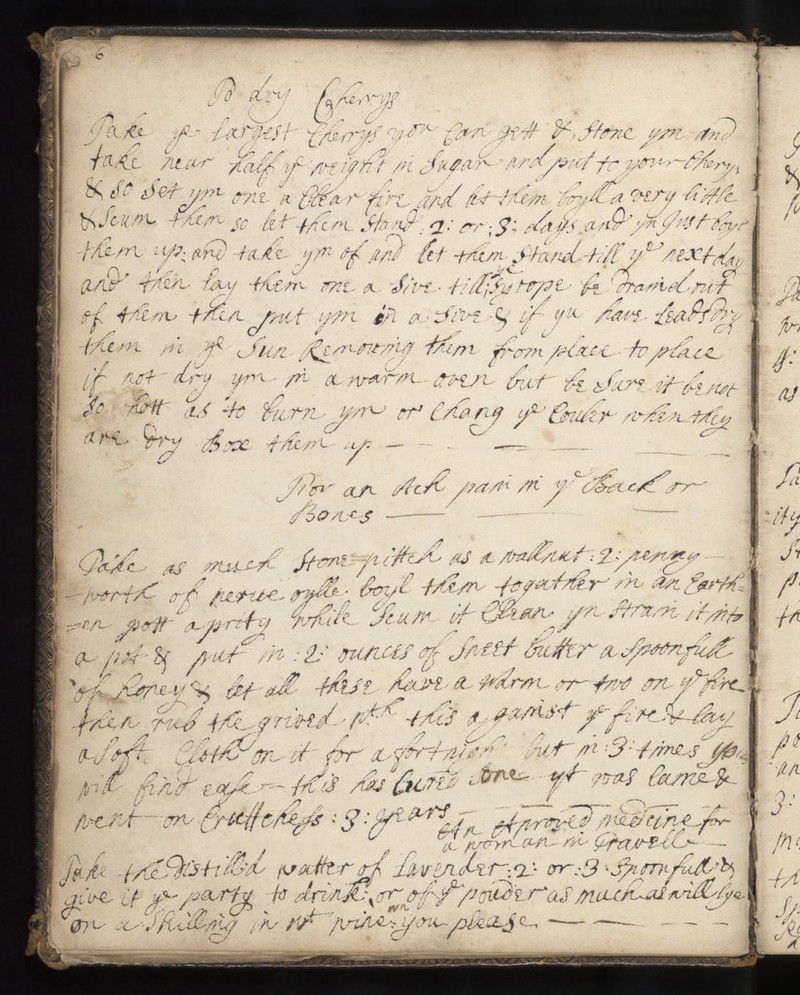 6
To dry Cherrys
Take ye largest Cherrys you Can gett & Stone ym and
take near half ye weight in Sugar and put to your Cherys
& so Set ym one a Clear fire and let them boyll a very little
& Scum them so let them Stand :2: or :3: days and yn Just boyl
them up: and take ym of and let them Stand till ye next day
and then lay them one a Sive till ye Syrope be Draind out
of them then put ym in a Sive & if yu have Leads Dry
them in ye Sun Removing them from place to place
if not dry ym in a warm oven but be Sure it be not
So hott as to burn ym or Chang ye Couler when they
are Dry Box them up
For an Ach pain in ye Back or
Bones
Take as much Stone pittch as a wallnut :2: penny
worth of nerve oylle boyl them togather in an Earth=
=en pott a prity while Scum it Clean yn Strain it into
a pot & put in :2: ounces of Sweet butter a Spoonfull
of honey & let all these have a Warm or two on ye fire
then rub the grived wth this against ye fire & lay
a Soft Cloth on it for a fortnight but in :3: times you
will find ease this has Cured one yt was lame &
went on Cruttchess :3: years
An Aproved medcine for
a woman in Travell
Take the Distilld watter of Lavender :2: or :3: Spoonfull &
give it ye party to drink or of ye pouder as much as will lye
on a Shilling in wt wine you please